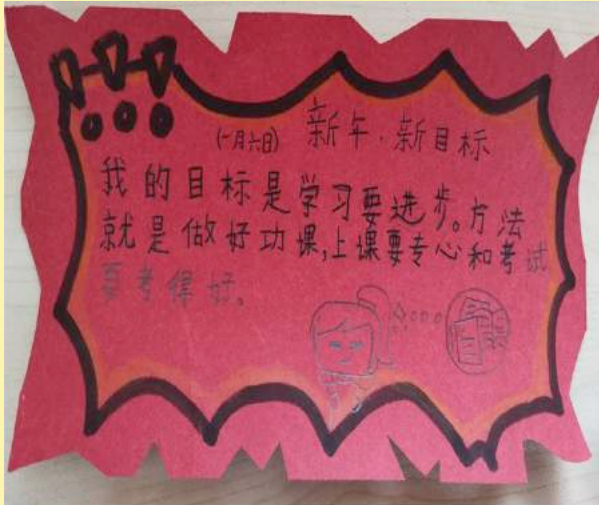 (一月六日) 新年，新目标
我的目标是学习要进步。方法
就是做好功课,上课要专心和考试
要考得好。